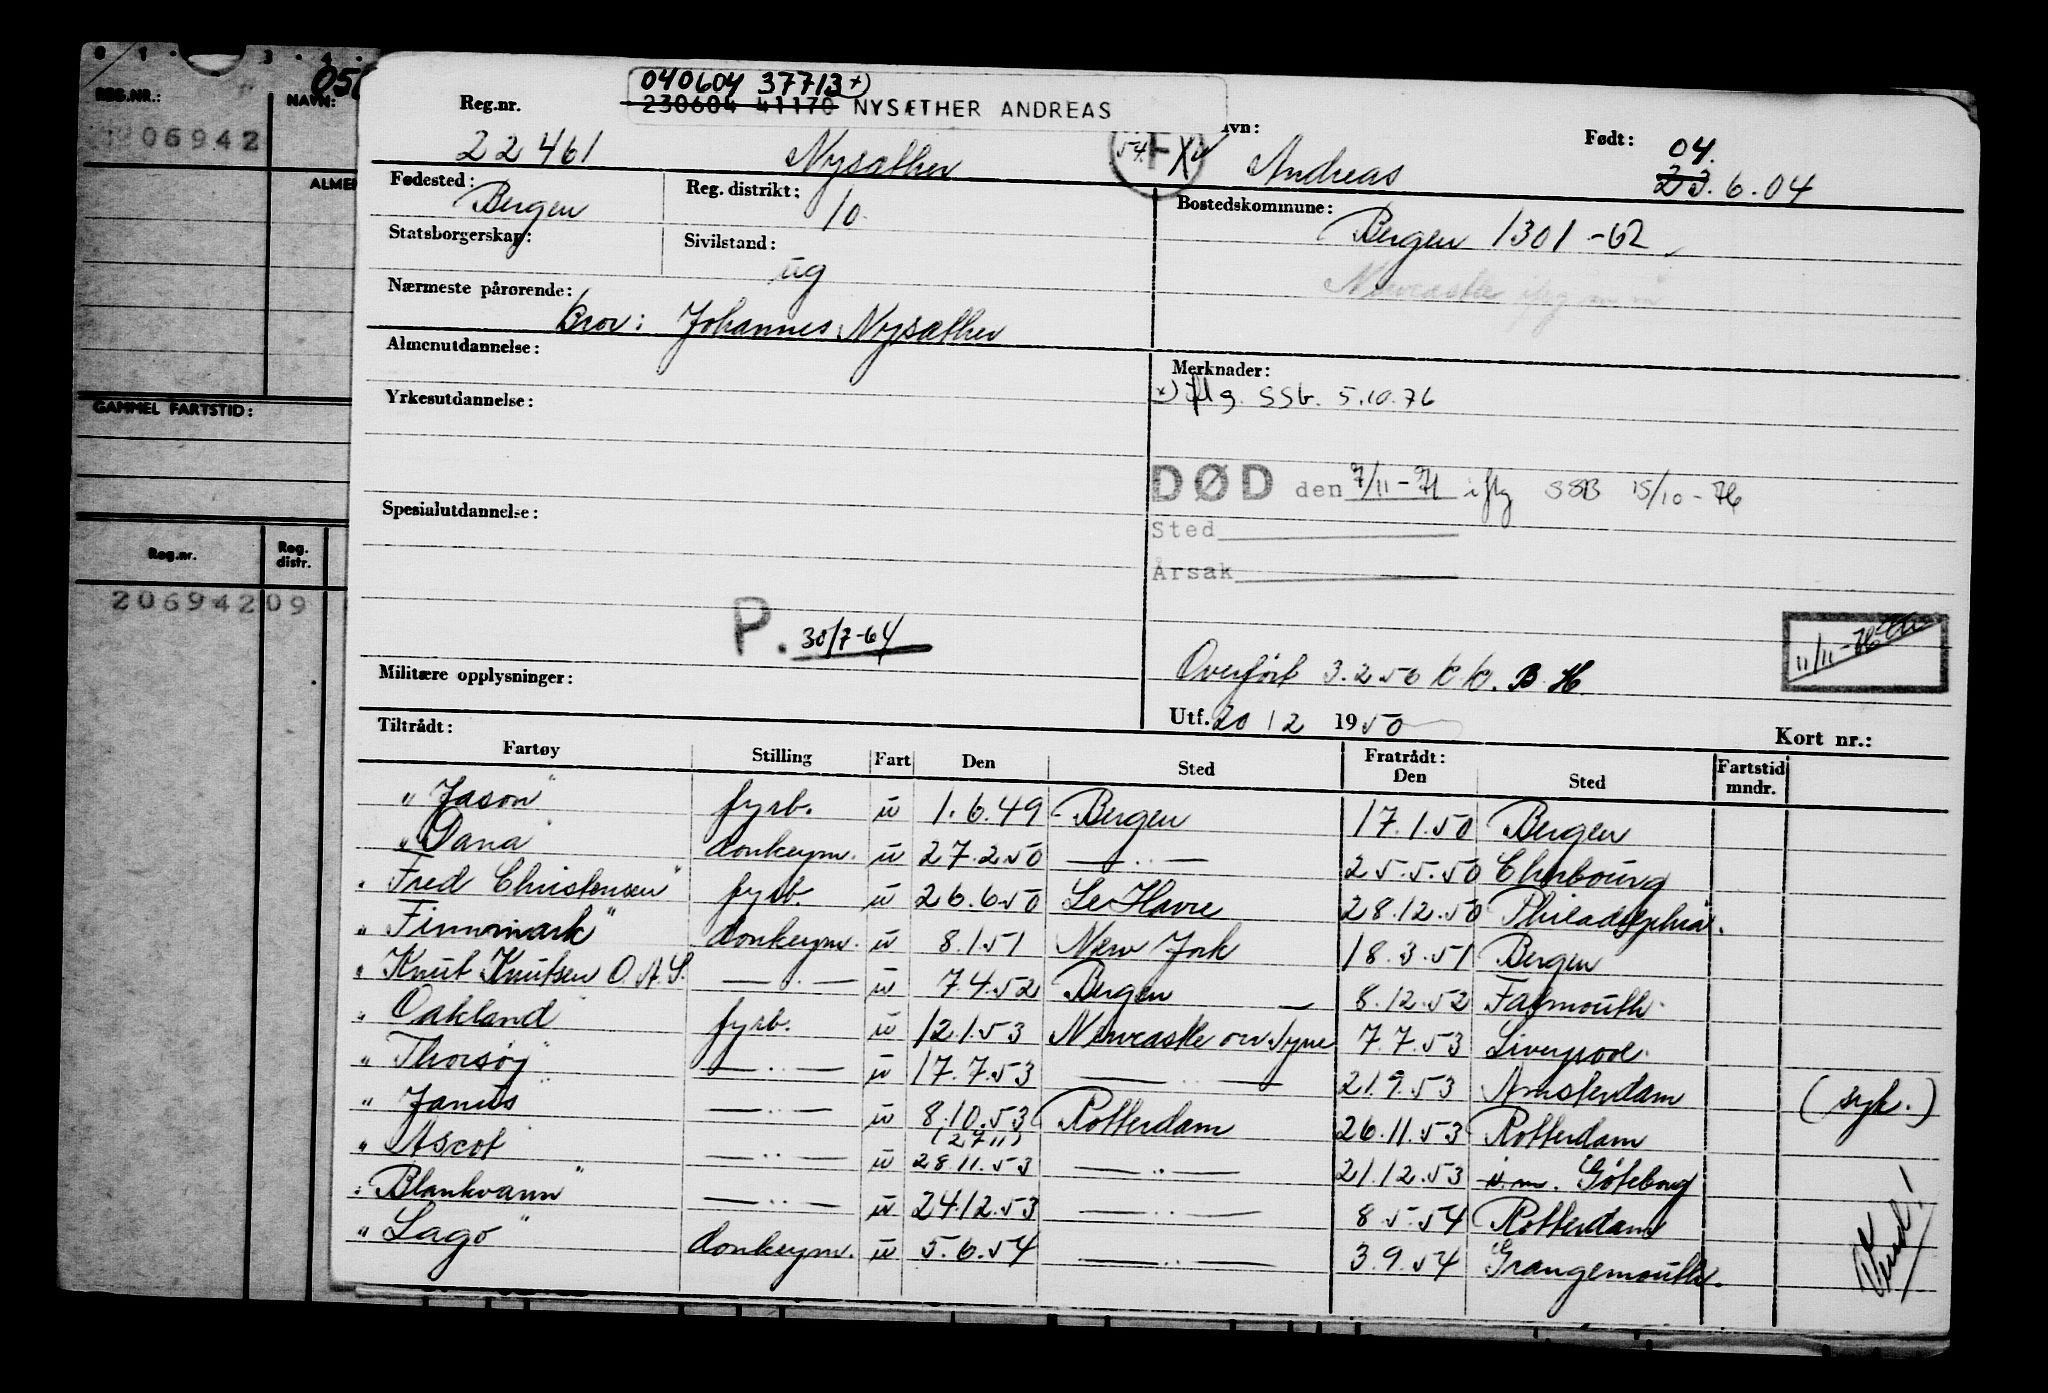 0 1 3 4
050
REG.NR.: NAVN:
206942
ALMEN
GAMMEL FARTSTID:
Reg.nr. Reg. distr.
206942 09
040604 37713 x)
230604 41170 NYSÆTHER ANDREAS
Reg.nr. avn: Født:
22461 Nysæther 54. F Andreas 04.
23.6.04
Fødested: Bergen Reg. distrikt: 10 Bostedskommune: Bergen 1301-62
Statsborgerskap: Sivilstand: ug
Nærmeste pårørende:
bror: Johannes Nysæther
Almenutdannelse: Merknader:
x) iflg. SSb. 5.10.76
Yrkesutdannelse:
DØD den 7/11-71 iflg SSB 15/10-76
Spesialutdannelse: Sted
Årsak
P. 30/7-64
11/11-76
Militære opplysninger: Overført 3.2.56 B H.
Utf. 20 12 1950
Tiltrådt: Kort nr.:
Fartøy Stilling Fart Den Sted Fratrådt: Den Sted Fartstid mndr.
"Jason" fyrb. u 1.6.49 Bergen 17.1.50 Bergen
"Dana" donkeym. u 27.2.50 —"— 25.5.50 Cherbourg
"Fred Christensen" fyrb. u 26.6.50 Le Havre 28.12.50 Philadelphia.
"Finnmark" donkeym. u 8.1.51 New York 18.3.51 Bergen
"Knut Knutsen O.A.S. —"— u 7.4.52 Bergen 8.12.52 Falmouth
"Oakland fyrb. u 12.1.53 Newcastle on Tyne 7.7.53 Liverpool.
"Thorsøy" —"— u 17.7.53 —"— 21.9.53 Amsterdam (syk.)
"Janus" —"— u 8.10.53 Rotterdam 26.11.53 Rotterdam
"Ascot —"— u (27 11) 28.11.53 —"— 21.12.53 u.m. Göteborg
"Blankvann" —"— u 24.12.53 —"— 8 5.54 Rotterdam
"Lago" donkeym. u 5.6.54 —"— 3.9.54 Grangemouth.